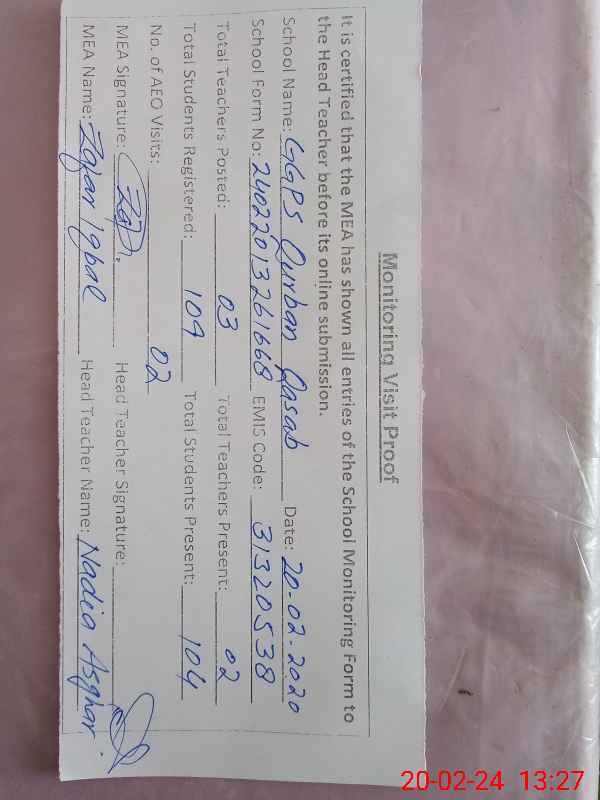 Monitoring Visit Proof
It is certified that the MEA has shown all entries of the School Monitoring Form to
the Head Teacher before its online submission.
School Name: GGPS Qurban Qasab Date: 20-02-2020
School Form No: 24022013261668 EMIS Code: 31320538
Total Teachers Posted: 03 Total Teachers Present: 02
Total Students Registered: 109 Total Students Present: 104
No. of AEO Visits: 02
MEA Signature: Head Teacher Signature:
MEA Name: Zafar Iqbal Head Teacher Name: Nadia Asghar
20-02-24 13:27